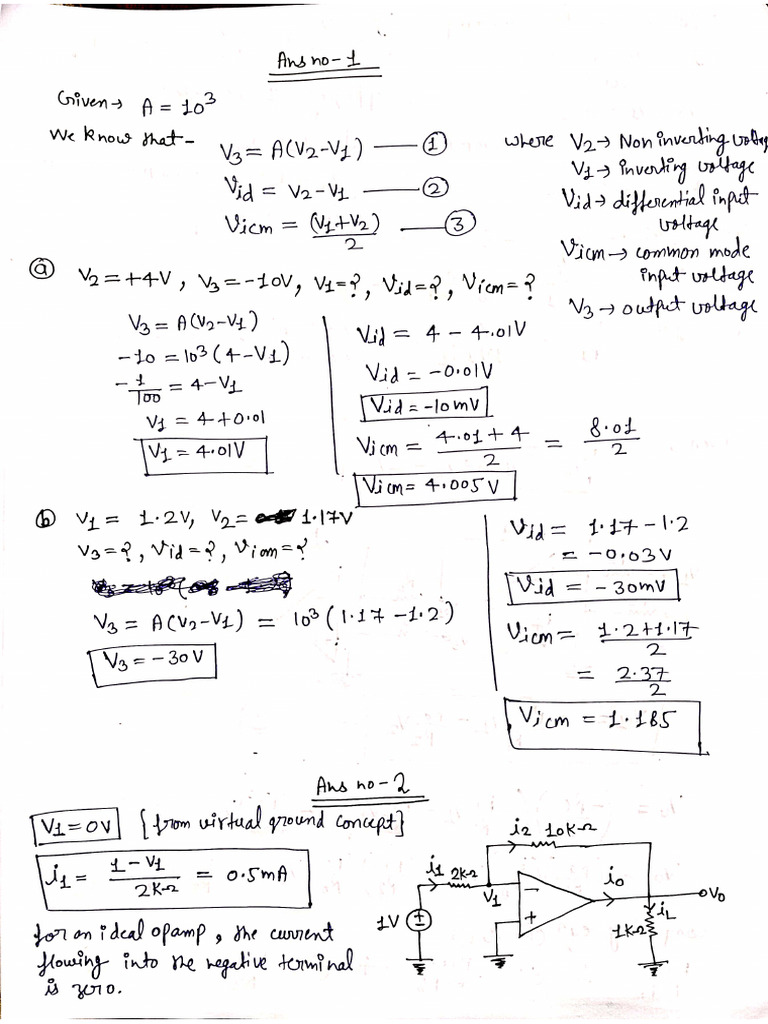 Ans no - 1
Given → A = 10³
We know that -
V3 = A(V2-V1) —— ①
Vid = V2-V1 —— ②
Vicm = (V1+V2)/2 —— ③
where V2 → Non inverting voltag
V1 → inverting voltage
Vid → differential input
voltage
Vicm → common mode
input voltage
V3 → output voltage
ⓐ V2 = +4V, V3 = -10V, V1 = ?, Vid = ?, Vicm = ?
V3 = A(V2-V1)
-10 = 10³(4-V1)
-1/100 = 4-V1
V1 = 4+0.01
V1 = 4.01V
Vid = 4 - 4.01V
Vid = -0.01V
Vid = -10mV
Vicm = (4.01+4)/2 = 8.01/2
Vicm = 4.005V
ⓑ V1 = 1.2V, V2 = 1.17V
V3 = ?, Vid = ?, Vicm = ?
V3 = A(V2-V1) = 10³(1.17-1.2)
V3 = -30V
Vid = 1.17-1.2
= -0.03V
Vid = -30mV
Vicm = (1.2+1.17)/2
= 2.37/2
Vicm = 1.185
Ans no - 2
V1 = 0V {from virtual ground concept}
i1 = (1-V1)/2KΩ = 0.5mA
for an ideal opamp, the current
flowing into the negative terminal
is zero.
i2 10KΩ
i1 2KΩ
V1
-
+
io
Vo
iL
1KΩ
1V
+
-